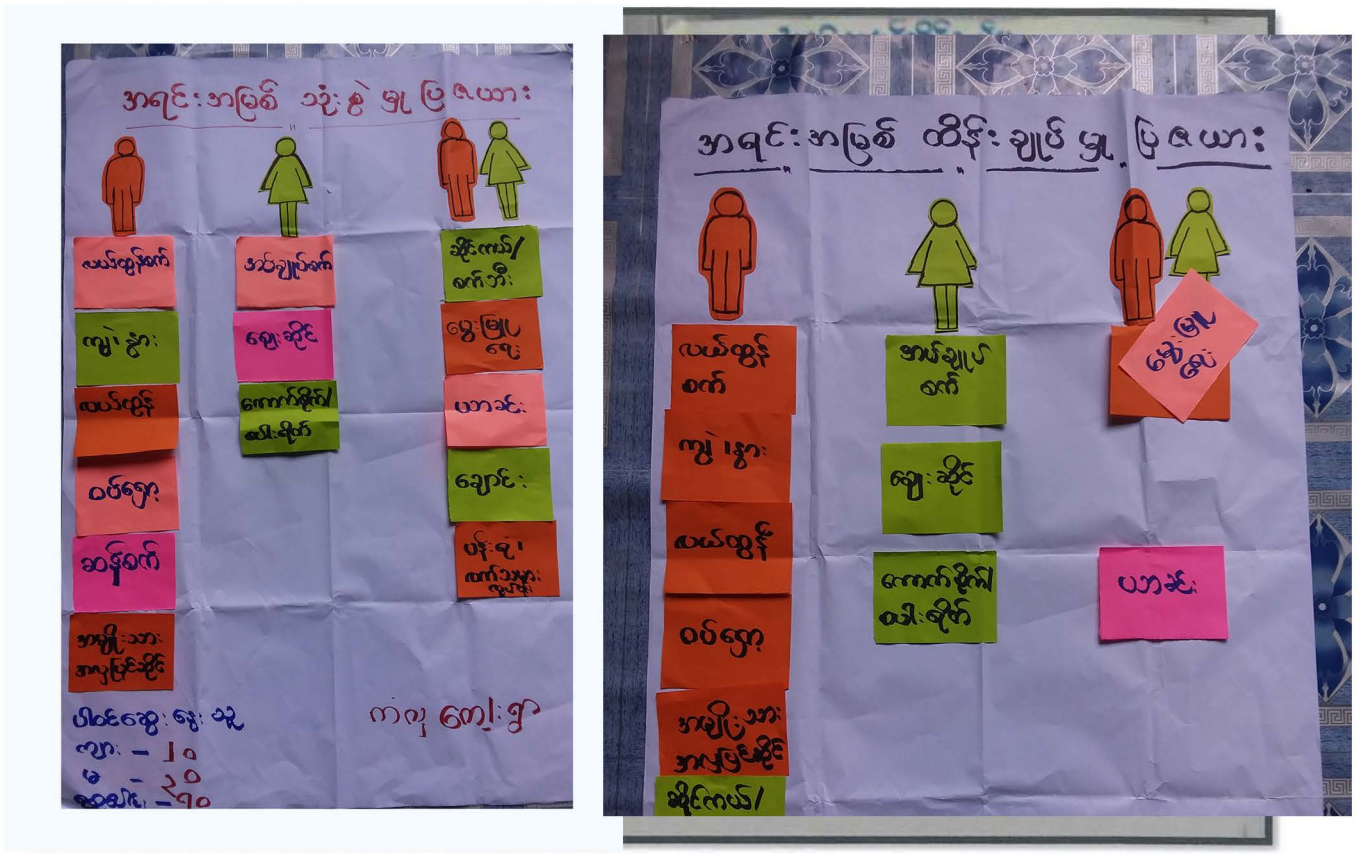 အရင်းအမြစ် သုံးစွဲမှု ပြဇယား
လယ်ထွန်စက်
ကျွဲ၊နွား
လယ်ထွန်
ဝပ်ရှော့
ဆန်စက်
အမျိုးသား
အလှပြင်ဆိုင်
အပ်ချုပ်စက်
ဈေးဆိုင်
ကောက်စိုက်/
ပေါင်းရိုက်
ဆိုင်ကယ်/
စက်ဘီး
မွေးမြူ
ရေး
ယာခင်း
ချောင်း
ပန်းရံ၊
ပါဝင်ဆွေးနွေးသူ
ကျား - ၂၀
မ - ၃၀
ကလှကော့ရွာ
အရင်းအမြစ် ထိန်းချုပ်မှု ပြဇယား
လယ်ထွန်
စက်
ကျွဲ၊နွား
လယ်ထွန်
ဝပ်ရှော့
အမျိုးသား
အလှပြင်ဆိုင်
ဆိုင်ကယ်/
အပ်ချုပ်
စက်
ဈေးဆိုင်
ကောက်စိုက်/
ပေါင်းရိုက်
မွေးမြူ
ရေး
ယာခင်း